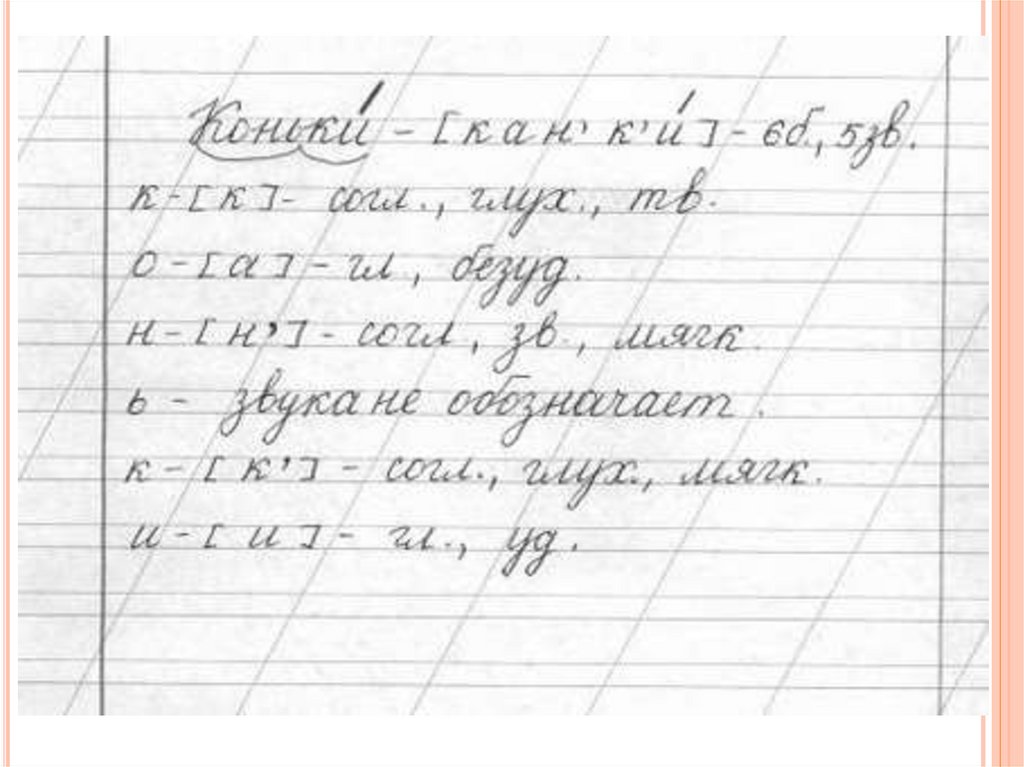 Коньки́ – [к а н’ к’ и́] – 6б., 5зв.
к – [к] – согл., глух., тв.
о – [а] – гл., безуд.
н – [н’] – согл., зв., мягк.
ь – звука не обозначает.
к – [к’] – согл., глух., мягк.
и – [и] – гл., уд.